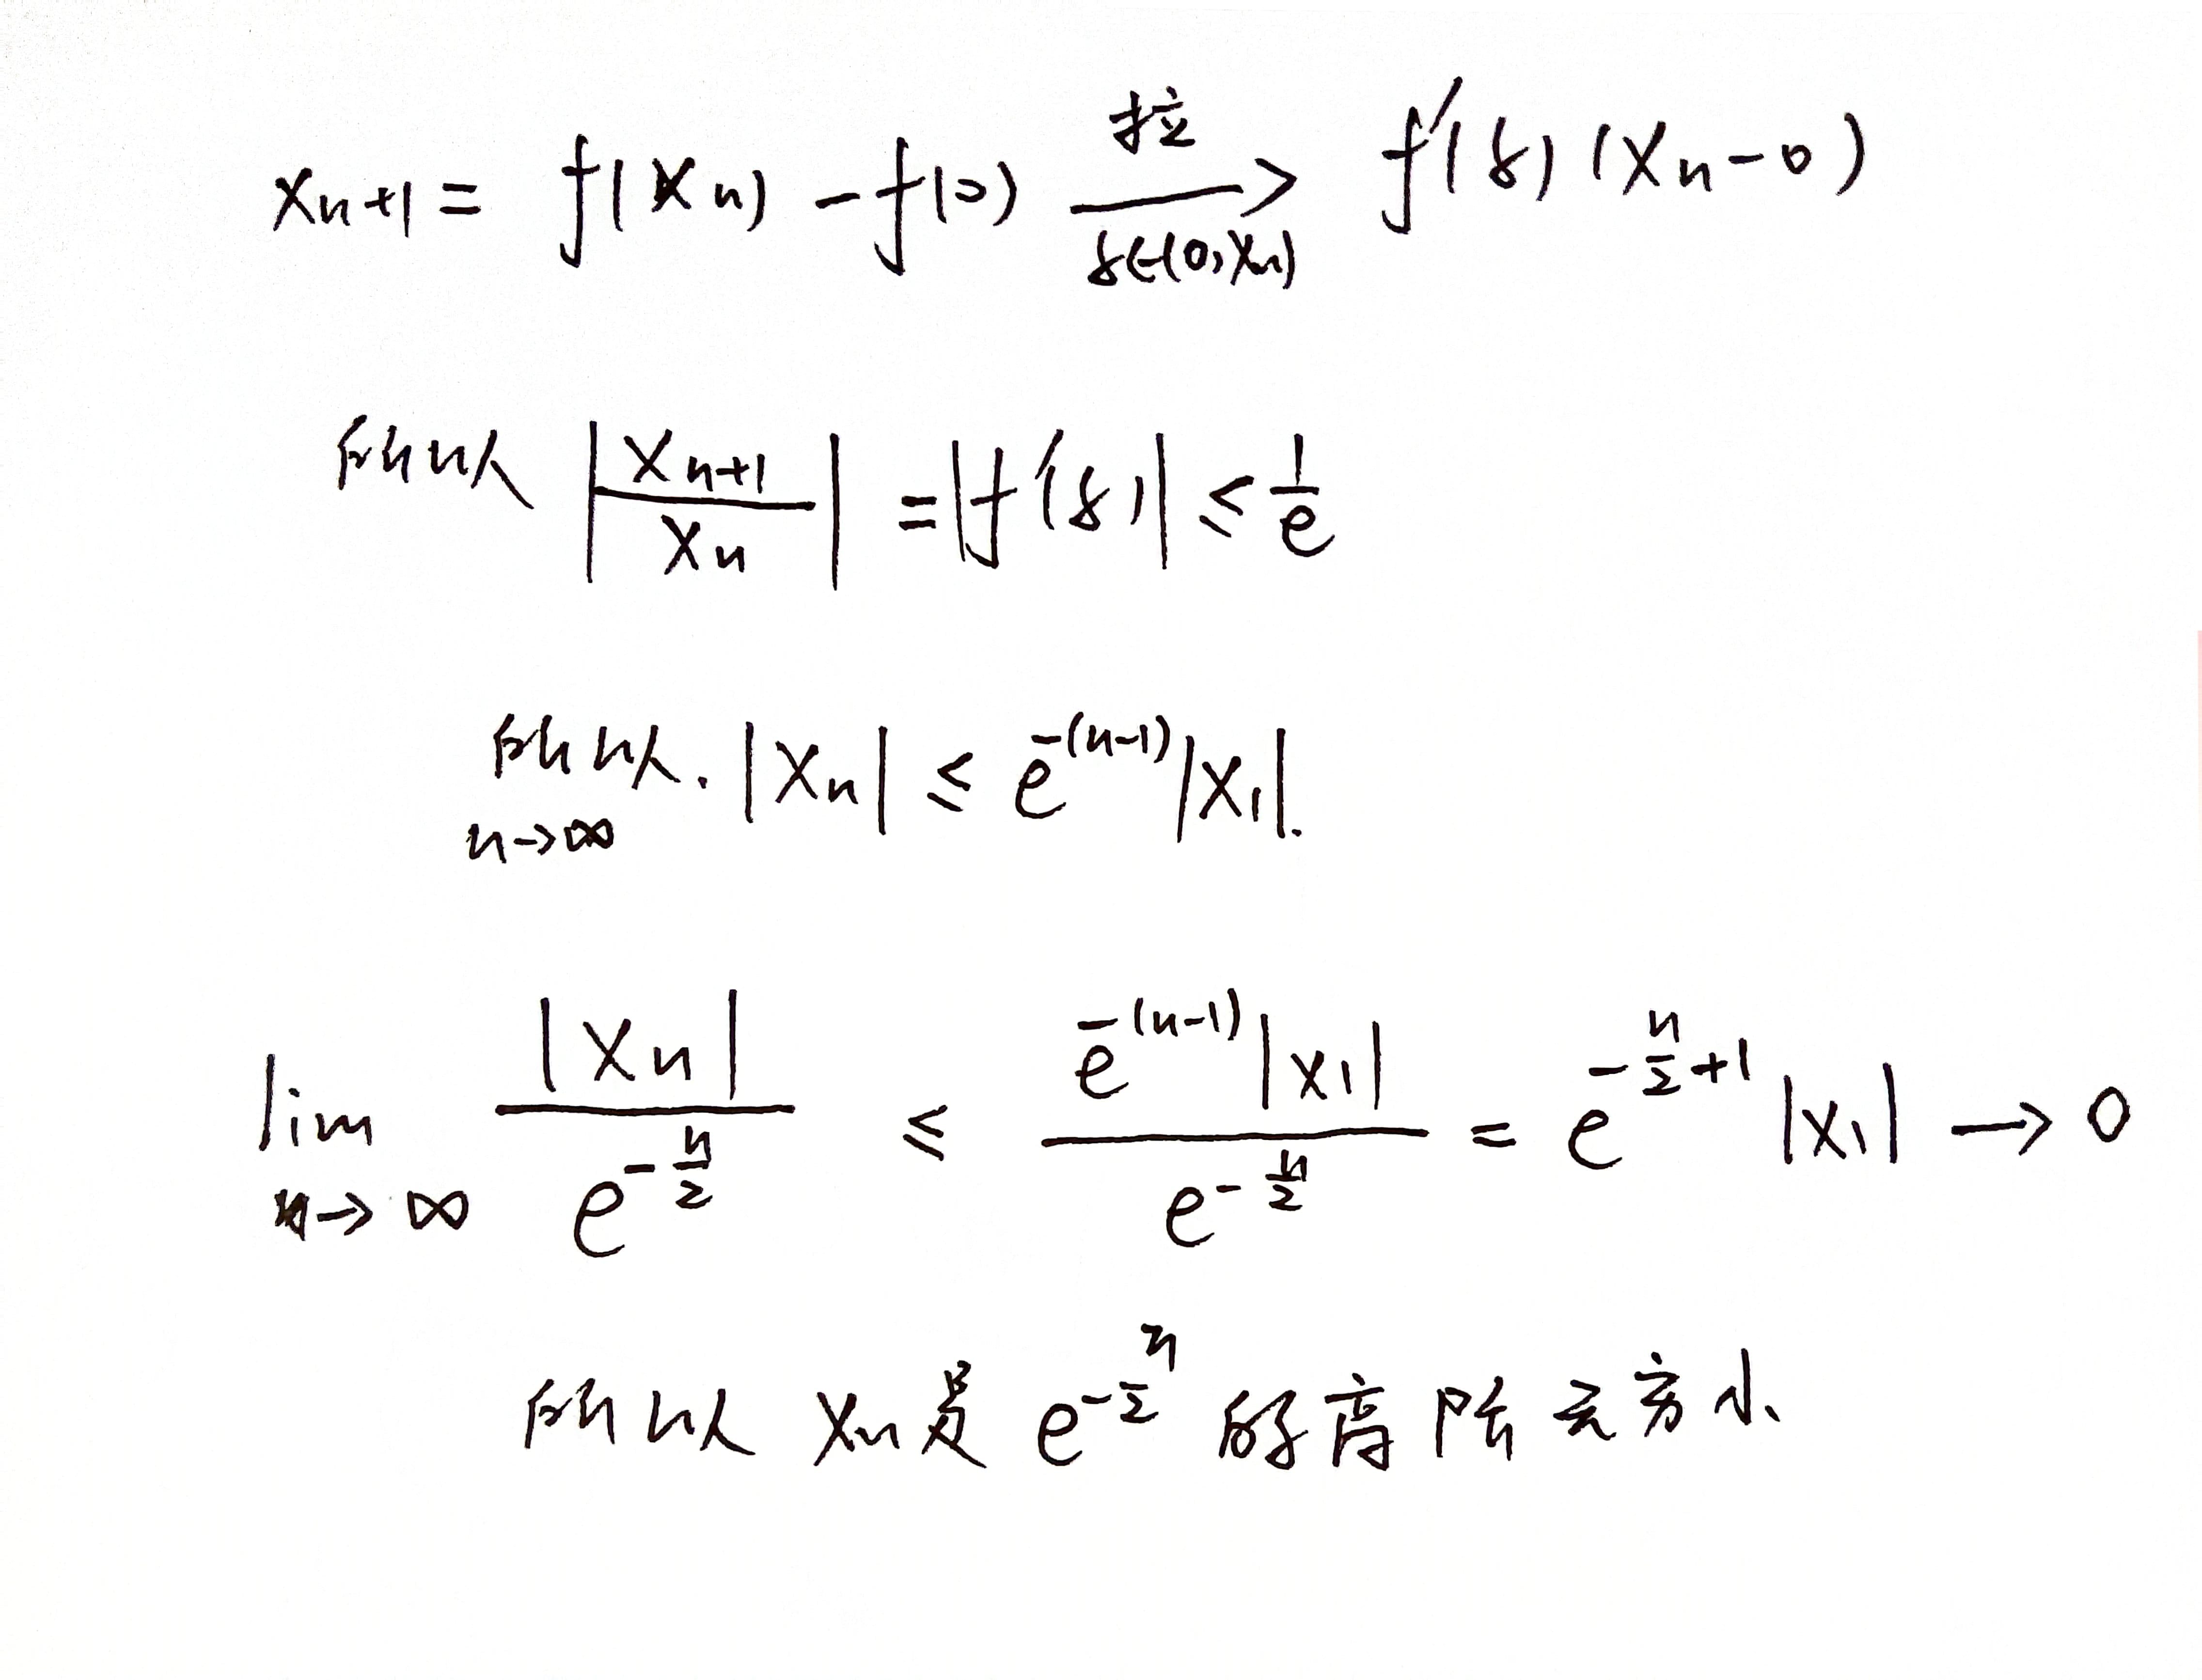 xₙ₊₁ = f(xₙ) - f(0) 拉 ξ∈(0,xₙ) → f'(ξ)(xₙ-0)
所以 |xₙ₊₁/xₙ| = |f'(ξ)| ≤ 1/e
所以. |xₙ| ≤ e^{-(n-1)}|x₁|.
n→∞
lim n→∞ |xₙ|/e^{-n/2} ≤ e^{-(n-1)}|x₁|/e^{-n/2} = e^{-n/2+1}|x₁| → 0
所以 xₙ是 e^{-n/2} 的高阶无穷小